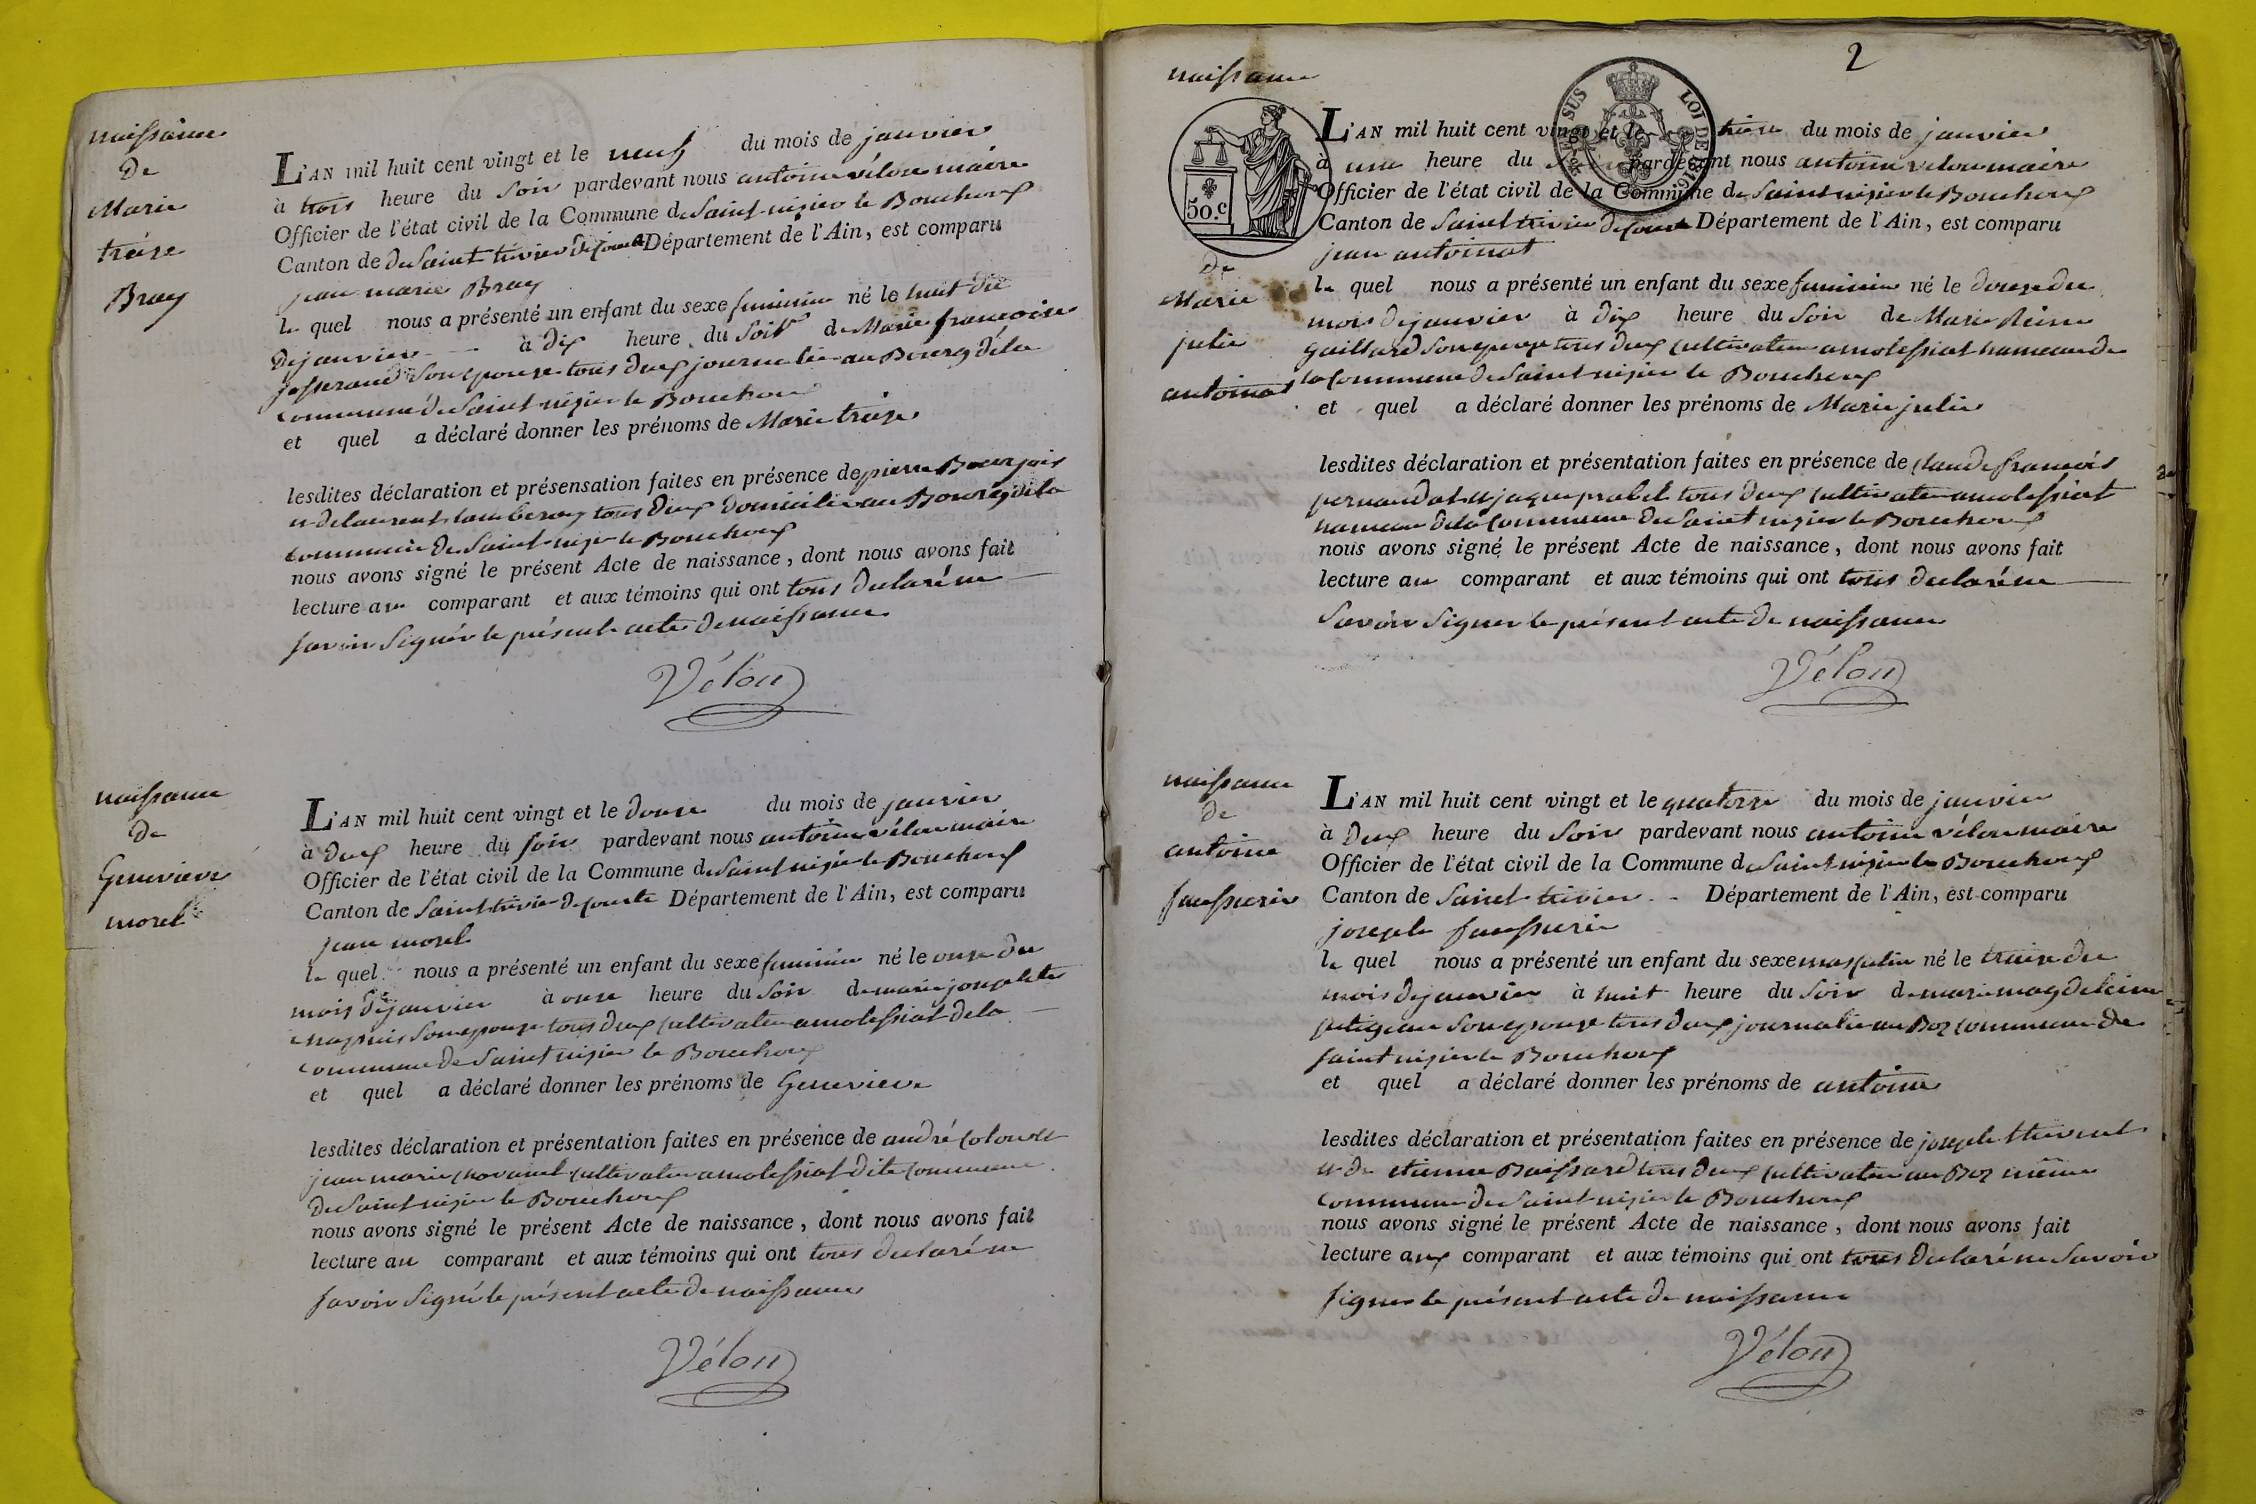 naissance
de
Marie
traise
Bray
L'AN mil huit cent vingt et le neuf du mois de janvier
à trois heure du soir pardevant nous antoine vélon maire
Officier de l'état civil de la Commune de Saint nizier le Bouchoux
Canton de de Saint trivier de courte Département de l'Ain, est comparu
jean marie Bray
le quel nous a présenté un enfant du sexe feminin né le huit du
de janvier à dix heure du soir de Marie francoise
josserand son epouze tous deux journalié au Bourg de la
commune de Saint nizier le Bouchoux
et quel a déclaré donner les prénoms de Marie traise
lesdites déclaration et présensation faites en présence de pierre Bourjois
et de laurent tous deux domicilié au Bourg de la
commune de Saint nizier le Bouchoux
nous avons signé le présent Acte de naissance, dont nous avons fait
lecture au comparant et aux témoins qui ont tous declaré ne
savoir signér le présent acte de naissance
Vélon
naissance
de
Genevieve
morel
L'AN mil huit cent vingt et le douze du mois de janvier
à deux heure du soir pardevant nous antoine vélon maire
Officier de l'état civil de la Commune de Saint nizier le Bouchoux
Canton de Saint trivier de courte Département de l'Ain, est comparu
jean morel
le quel nous a présenté un enfant du sexe feminin né le onze du
mois de janvier à onze heure du soir de marie josephte
son epouze tous deux cultivateur a molessiat de la
commune de Saint nizier le Bouchoux
et quel a déclaré donner les prénoms de Genevieve
lesdites déclaration et présentation faites en présence de andré
jean marie cultivateur a molessiat dite commune
de Saint nizier le Bouchoux
nous avons signé le présent Acte de naissance, dont nous avons fait
lecture au comparant et aux témoins qui ont tous declaré ne
savoir signé le présent acte de naissance
Vélon
2
naissance
de
Marie
julie
antoinat
50.c
EN SUS LOI DE 1816
L'AN mil huit cent vingt et le treize du mois de janvier
à une heure du soir pardevant nous antoine vélon maire
Officier de l'état civil de la Commune de Saint nizier le Bouchoux
Canton de Saint trivier de courte Département de l'Ain, est comparu
jean antoinat
le quel nous a présenté un enfant du sexe feminin né le douze du
mois de janvier à dix heure du soir de Marie Reine
gaillard son epouze tous deux cultivateur a molessiat hameau de
la commune de Saint nizier le Bouchoux
et quel a déclaré donner les prénoms de Marie julie
lesdites déclaration et présentation faites en présence de claude francois
pernaudat et jaque prabel tous deux cultivateur a molessiat
hameau de la commune de Saint nizier le Bouchoux
nous avons signé le présent Acte de naissance, dont nous avons fait
lecture au comparant et aux témoins qui ont tous declaré ne
savoir signer le présent acte de naissance
Vélon
naissance
de
antoine
faussurie
L'AN mil huit cent vingt et le quatorze du mois de janvier
à deux heure du soir pardevant nous antoine vélon maire
Officier de l'état civil de la Commune de Saint nizier le Bouchoux
Canton de Saint trivier Département de l'Ain, est comparu
joseph faussurie
le quel nous a présenté un enfant du sexe masqulin né le traize du
mois de janvier à huit heure du soir de marie magdeleine
petitjean son epouze tous deux journalié au Boz commune de
saint nizier le Bouchoux
et quel a déclaré donner les prénoms de antoine
lesdites déclaration et présentation faites en présence de joseph thevenet
et de etienne Baissard tous deux cultivateur au Boz même
commune de Saint nizier le Bouchoux
nous avons signé le présent Acte de naissance, dont nous avons fait
lecture aux comparant et aux témoins qui ont tous declaré ne savoir
signer le présent acte de naissance
Vélon